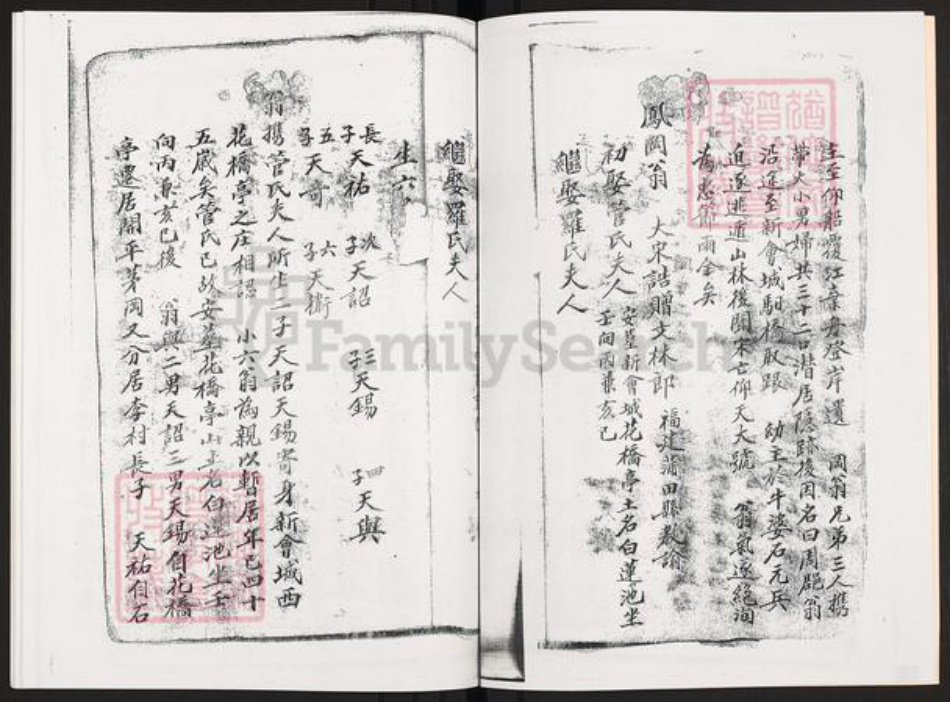 圭至仰船覆江章君登岸遺 岡翁兄弟三人携
帶大小男婦共三十二口潛居隱跡後因名曰周郡翁
沿途至新會城馹橋駁跟 幼主於牛婆石元兵
近逐逃遁山林後聞宋亡仰天大號 翁氣逐絕洵
為忠節兩全矣
鳳岡翁 大宋誥贈文林郎 福建莆田縣教諭
初娶管氏夫人 安葬新會城花橋亭土名白蓮池坐
壬向丙兼亥巳
繼娶羅氏夫人
繼娶羅氏夫人
生六
長子天祐 次子天詔 三子天錫 四子天與
五子天奇 六子天衛
翁携管氏夫人所生二子天詔天錫寄身新會城西
花橋亭之庄相認 小六翁為親以暫居年已四十
五歲矣管氏已故安葬花橋亭山土名白蓮池坐壬
向丙兼亥巳後 翁與二男天詔三男天錫自花橋
亭遷居開平茅岡又分居李村長子 天祐自石
FamilySearch